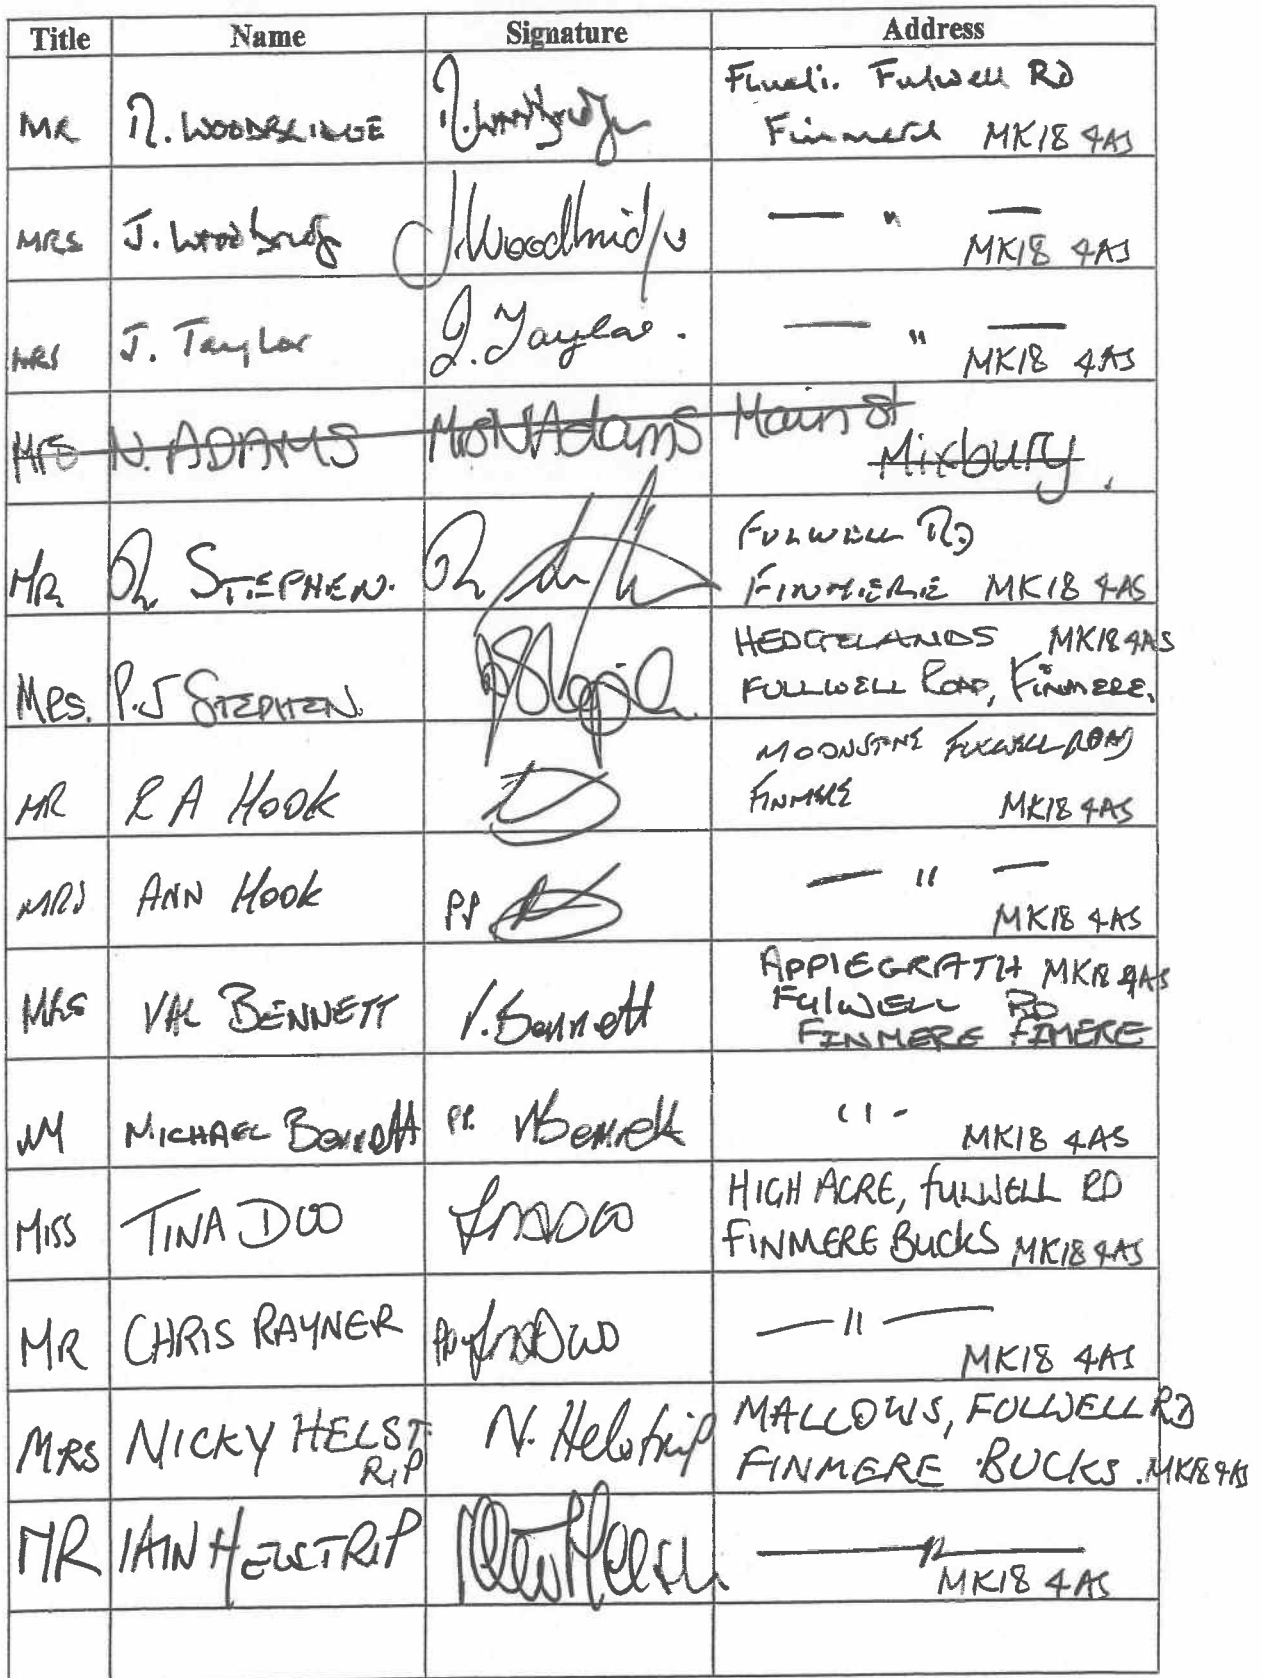 Title Name Signature Address
MR R. WOODBRIDGE R. Woodbridge Fulwell RD
Finmere MK18 4AS
MRS J. Woodbridge J. Woodbridge — " —
MK18 4AS
MRS J. Taylor J. Taylor. — " —
MK18 4AS
Mrs N. ADAMS Mrs N Adams Main St
Mixbury.
MR R STEPHEN. FULWELL RD
FINMERE MK18 4AS
MRS. P.J STEPHEN. HEDGELANDS MK18 4AS
FULLWELL ROAD, FINMERE.
MR R A HOOK MOONSTONE FULWELL ROAD
FINMERE MK18 4AS
MRS ANN HOOK PP — " —
MK18 4AS
MRS VAL BENNETT V. Bennett APPLEGRATH MK18 4AS
FULWELL RD
FINMERE FIMERE
M MICHAEL BENNETT PP. V Bennett " -
MK18 4AS
MISS TINA DOO HIGH ACRE, FULWELL RD
FINMERE BUCKS MK18 4AS
MR CHRIS RAYNER PP — " —
MK18 4AS
MRS NICKY HELST- N. Helstrip MALLOWS, FULWELL RD
RIP FINMERE BUCKS. MK18 4AS
MR IAIN HELSTRIP — " —
MK18 4AS